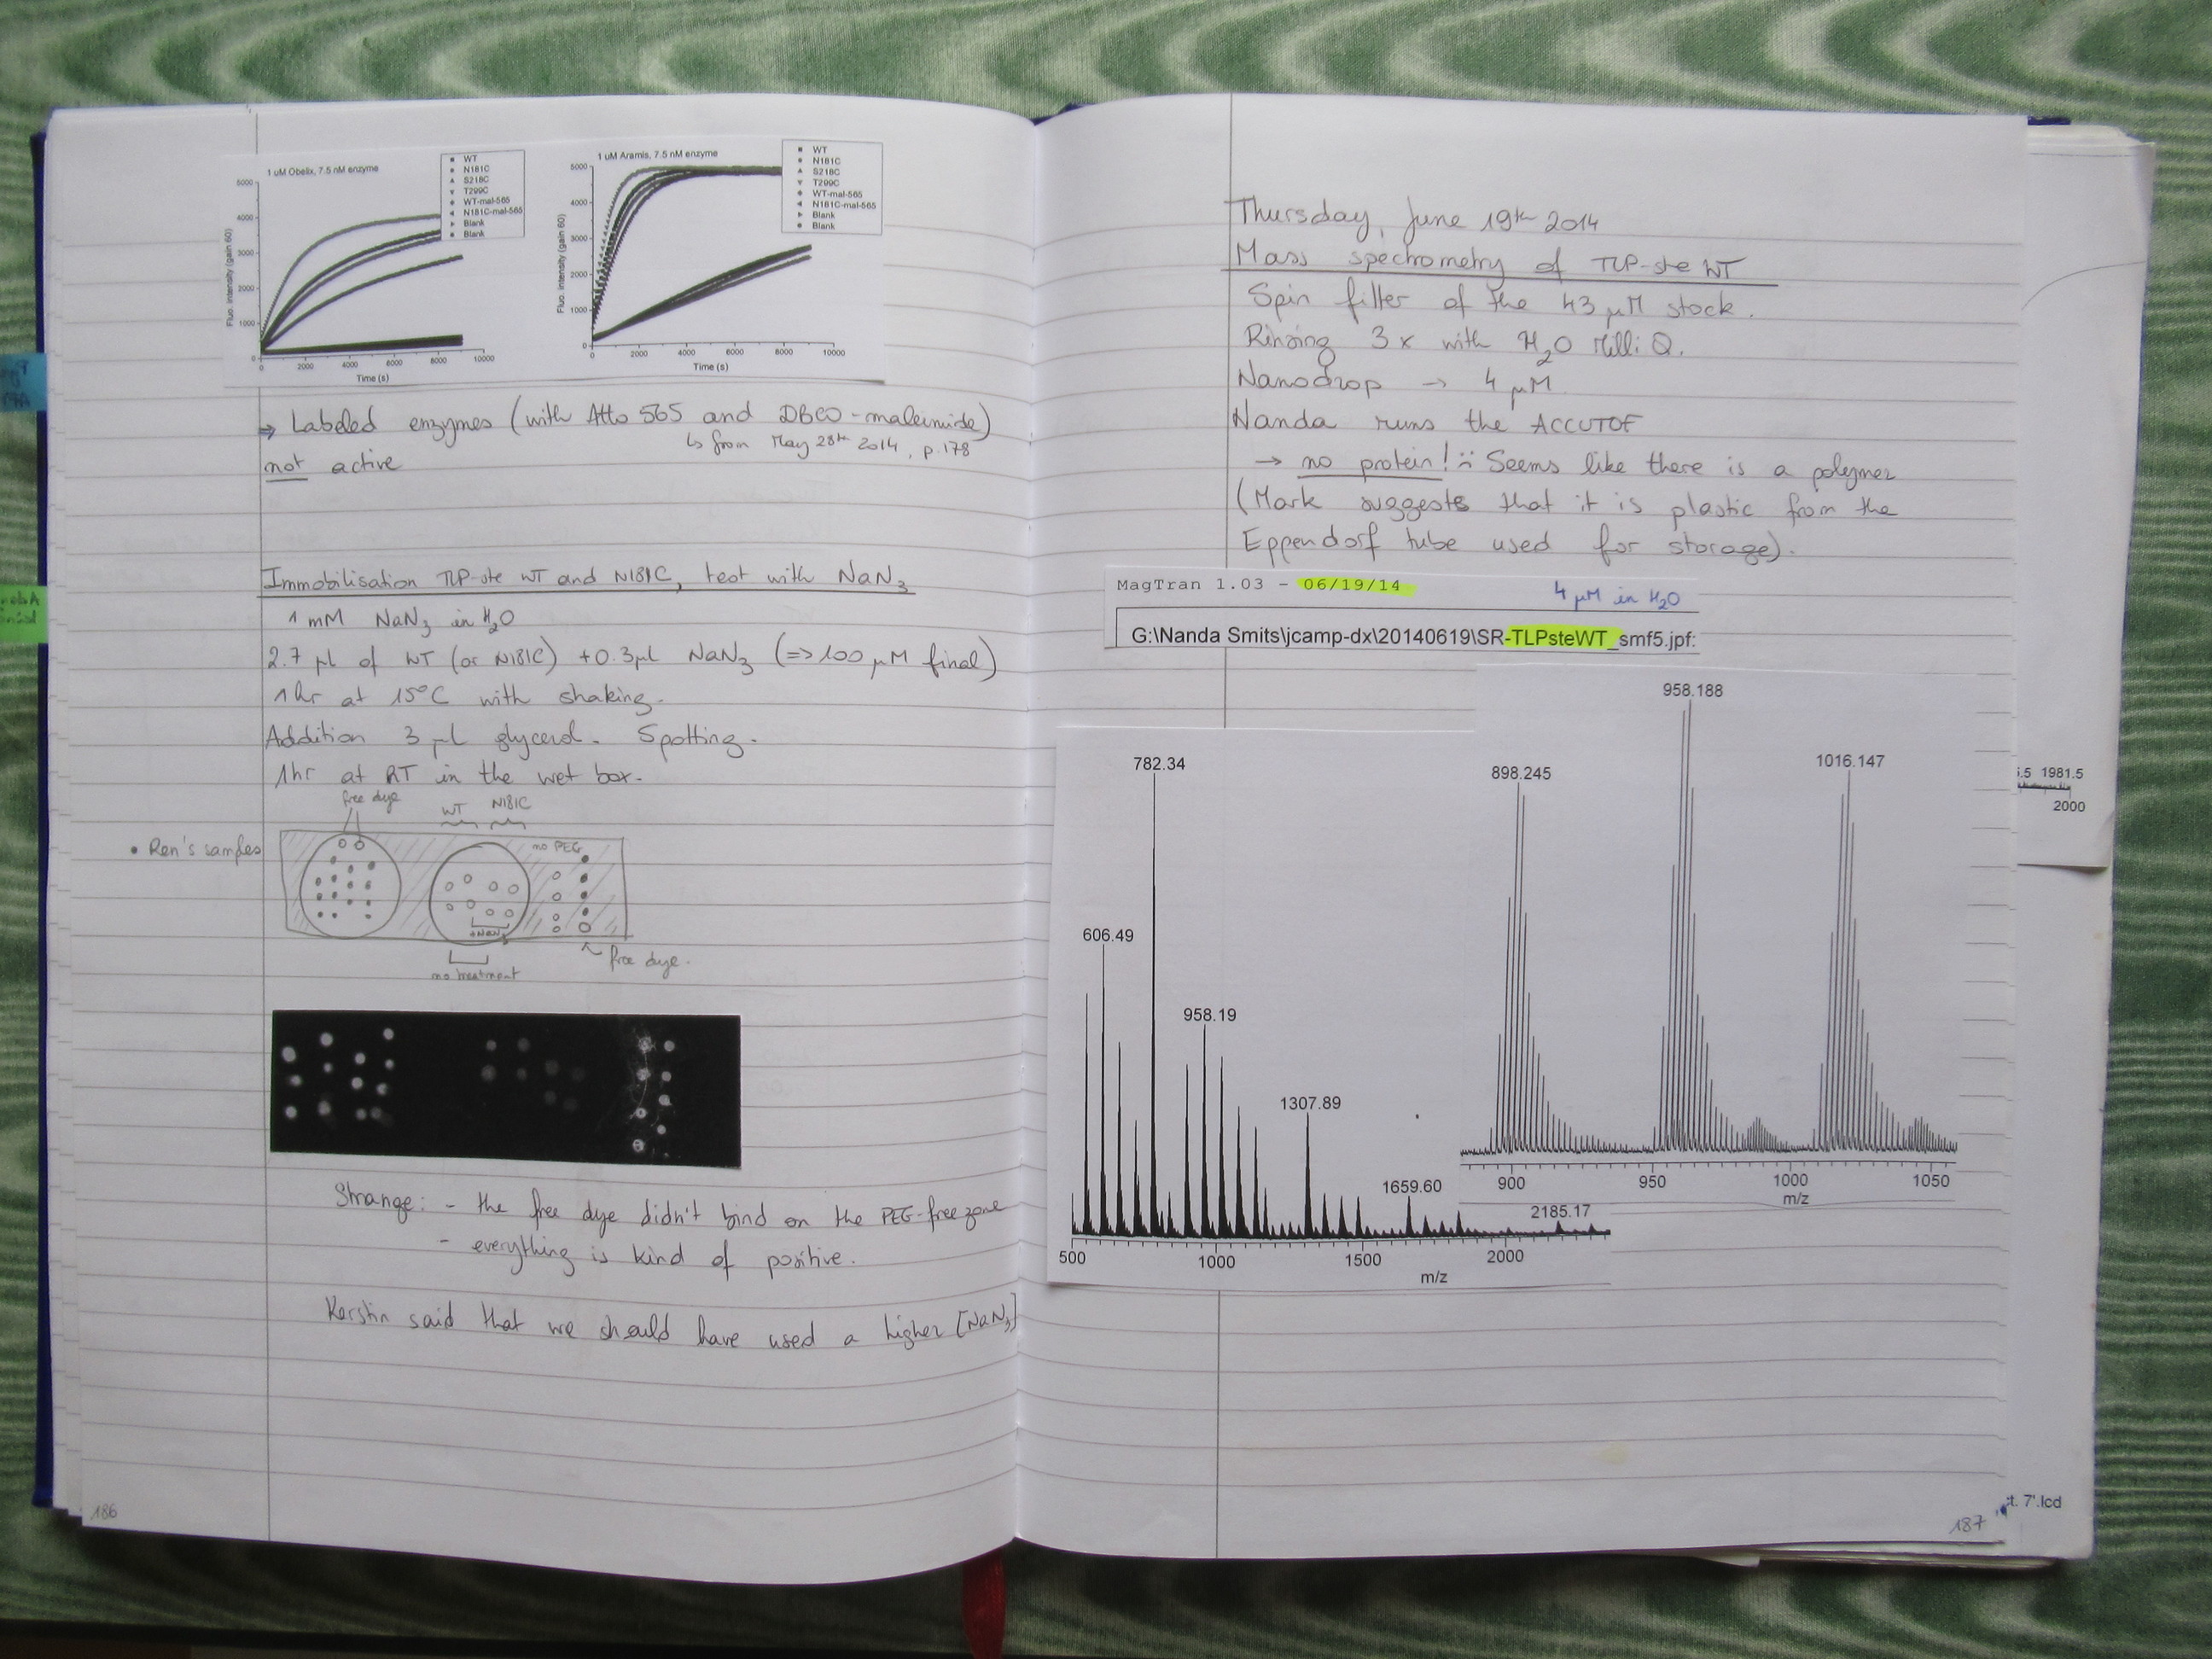 1 uM Obelix, 7.5 nM enzyme
WT
N181C
S218C
T299C
WT-mal-565
N181C-mal-565
Blank
Blank
Fluo. intensity (gain 60)
5000
4000
3000
2000
1000
0
0 2000 4000 6000 8000 10000
Time (s)
1 uM Aramis, 7.5 nM enzyme
WT
N181C
S218C
T299C
WT-mal-565
N181C-mal-565
Blank
Blank
Fluo. intensity (gain 60)
5000
4000
3000
2000
1000
0
0 2000 4000 6000 8000 10000
Time (s)
⇒ Labeled enzymes (with Atto 565 and DBCO-maleimide)
↳ from May 28th 2014, p.178
not active
Immobilisation TLP-ste WT and N181C, test with NaN3
1 mM NaN3 in H2O
2.7 µl of WT (or N181C) + 0.3µl NaN3 (=> 100 µM final)
1hr at 15°C with shaking.
Addition 3 µL glycerol. Spotting.
1hr at RT in the wet box.
free dye
WT N181C
• Ren's samples
no PEG
+NaN3
no treatment
free dye.
Strange: - the free dye didn't bind on the PEG-free zone
- everything is kind of positive.
Kerstin said that we should have used a higher [NaN3]
186
Thursday, June 19th 2014
Mass spectrometry of TLP-ste WT
Spin filter of the 43 µM stock.
Rinsing 3x with H2O Milli Q.
Nanodrop → 4 µM
Nanda runs the ACCUTOF
→ no protein! :( Seems like there is a polymer
(Mark suggests that it is plastic from the
Eppendorf tube used for storage).
MagTran 1.03 - 06/19/14
4 µM in H2O
G:\Nanda Smits\jcamp-dx\20140619\SR-TLPsteWT_smf5.jpf:
782.34
606.49
958.19
1307.89
1659.60
2185.17
500 1000 1500 2000
m/z
958.188
898.245
1016.147
900 950 1000 1050
m/z
1981.5
2000
t. 7'.lcd
187